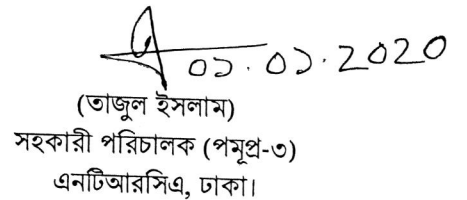 ০১.০১.2020
(তাজুল ইসলাম)
সহকারী পরিচালক (পমূপ্র-৩)
এনটিআরসিএ, ঢাকা।